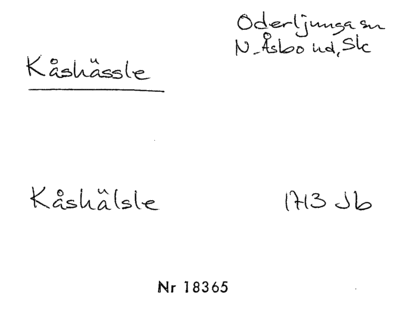 Oderljunga sn
N. Åsbo hd, Sk
Kåshässle
Kåshälsle 1713 Jb
Nr 18365